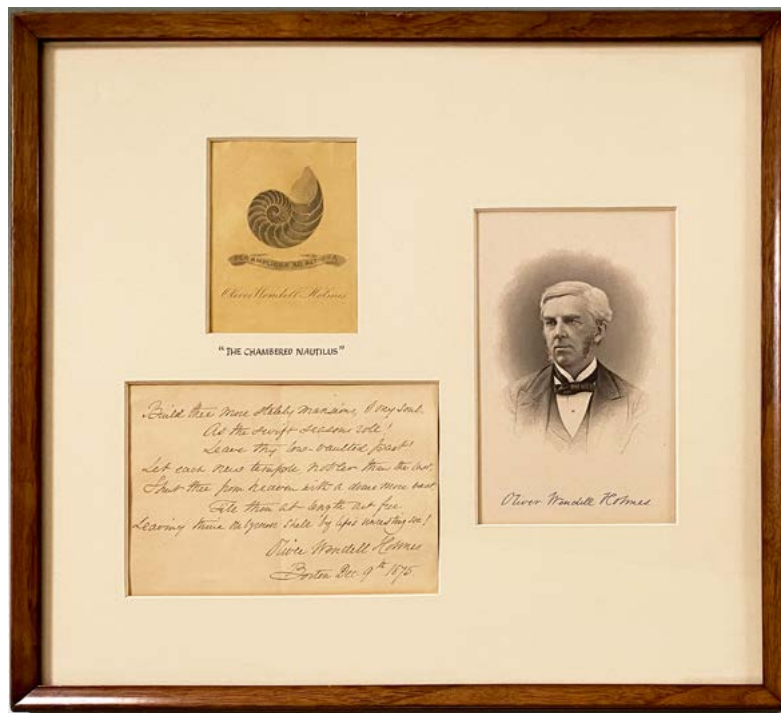 PER AMPLIORA AD ALTIORA
Oliver Wendell Holmes
"THE CHAMBERED NAUTILUS"
Build thee more stately mansions, O my soul,
As the swift seasons role!
Leave thy low-vaulted past!
Let each new temple, nobler than the last,
Shut thee from heaven with a dome more vast
Till thou at length art free
Leaving thine outgrown shell by life's unresting sea!
Oliver Wendell Holmes
Boston Dec. 9th 1875.
Oliver Wendell Holmes